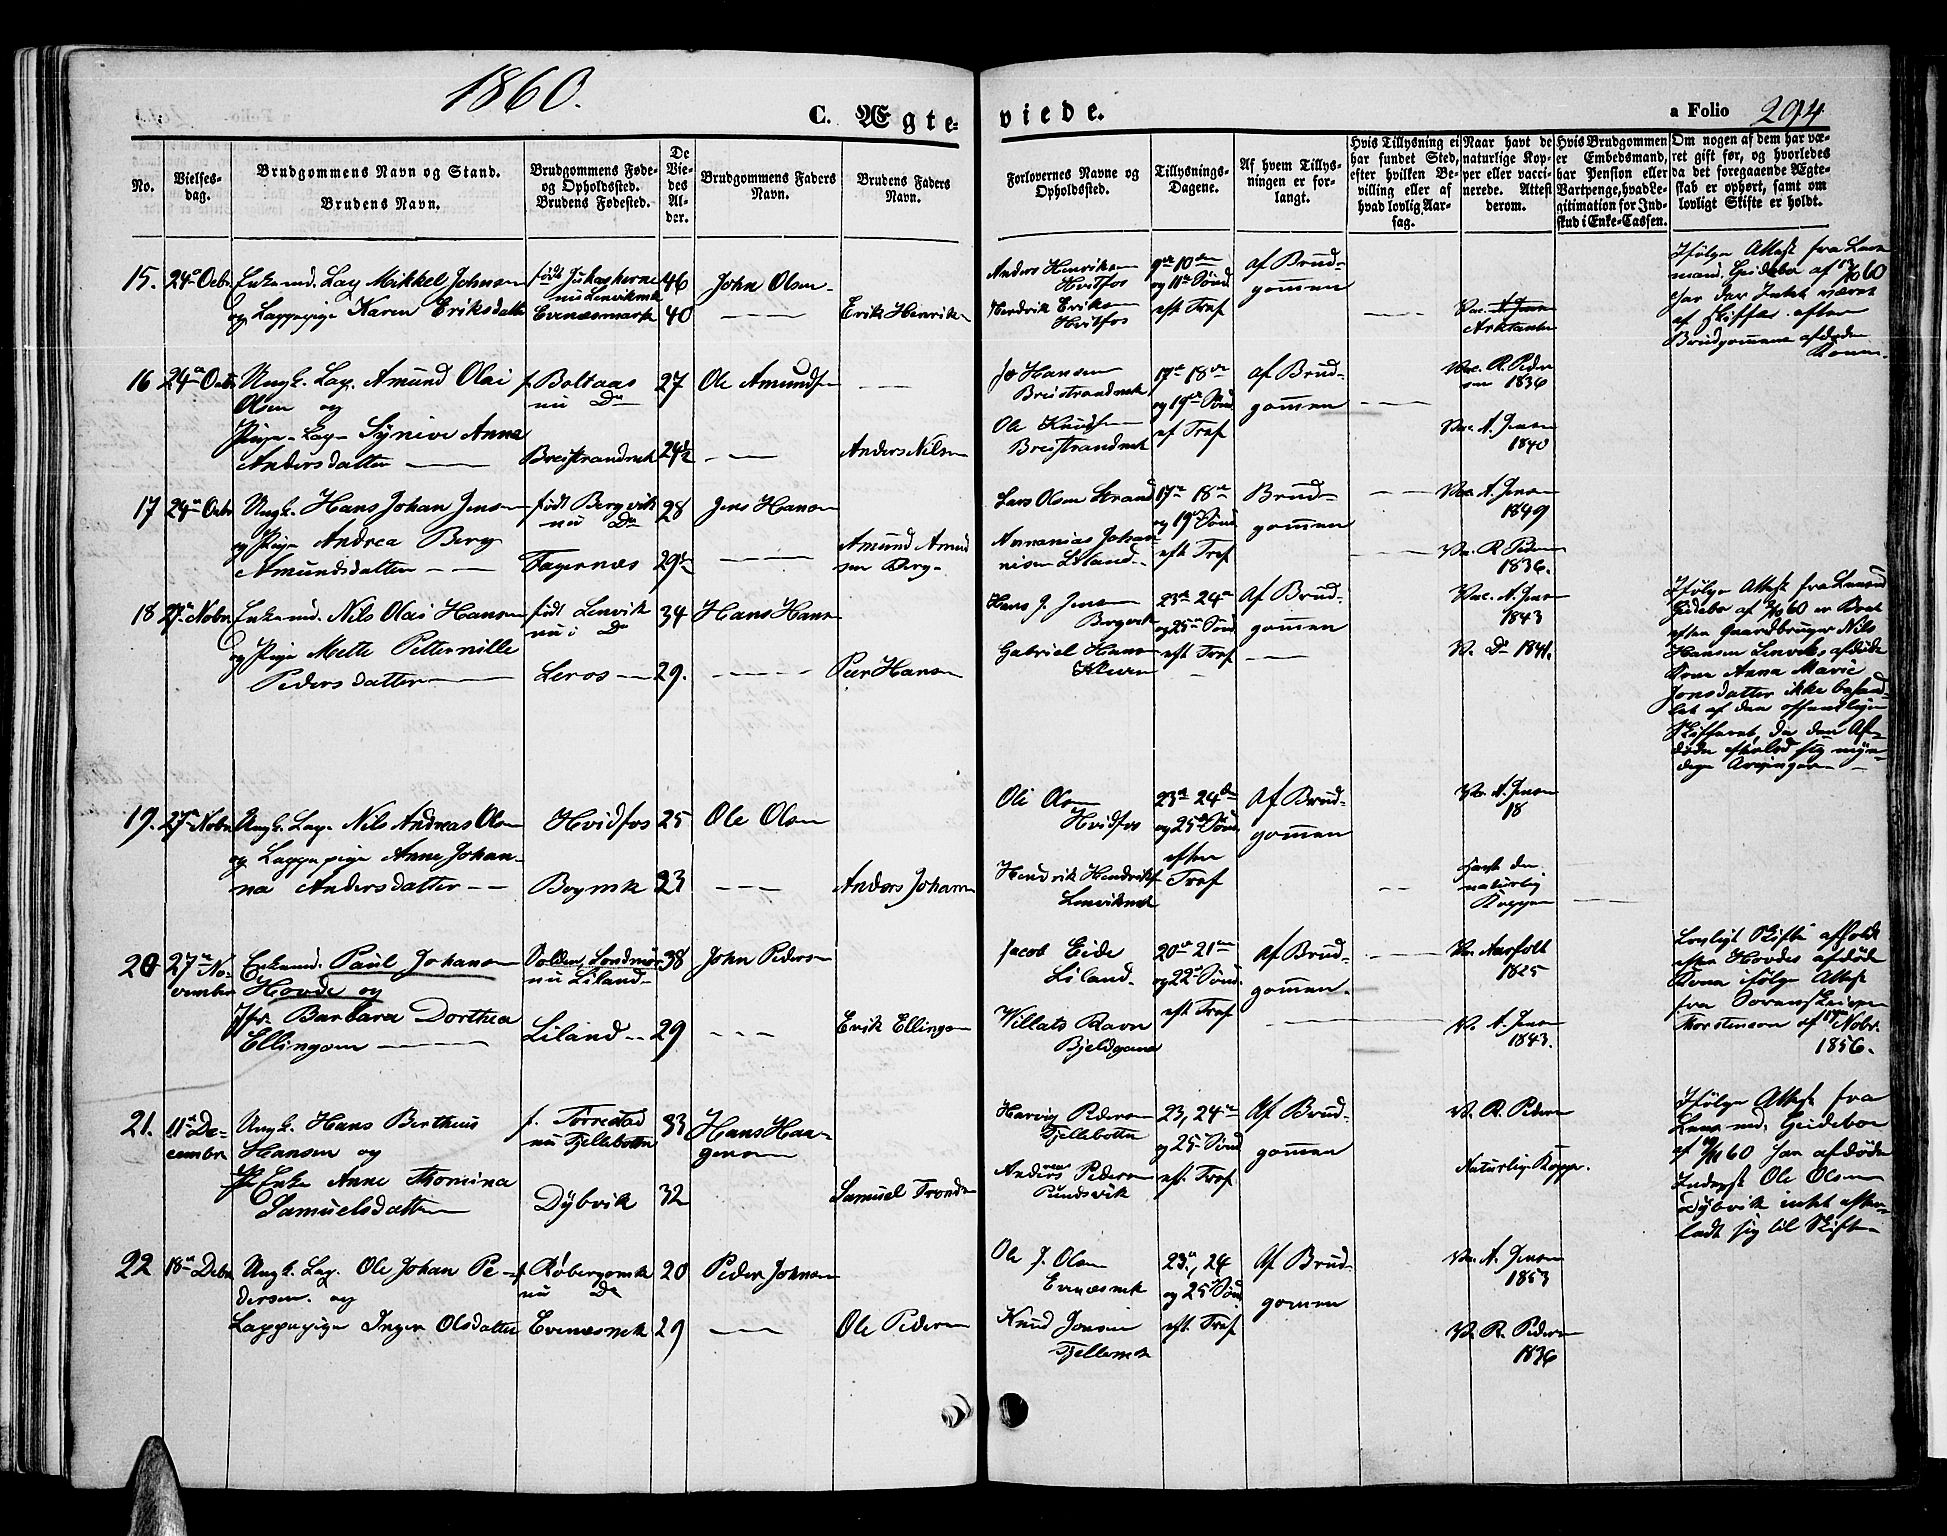 1860.
C. Ægte-
viede.
a Folio 294
No.
Vielses-
dag.
Brudgommens Navn og Stand.
Brudens Navn.
Brudgommens Føde-
og Opholdssted.
Brudens Fødested.
De
Vie-
des
Al-
der.
Brudgommens Faders
Navn.
Brudens Faders
Navn.
Forlovernes Navne og
Opholdssted.
Tillysnings-
Dagene.
Af hvem Tillys-
ningen er for-
langt.
Hvis Tillysning ei
har fundet Sted,
efter hvilken Be-
villing eller af
hvad lovlig Aar-
sag.
Naar havt de
naturlige Kop-
per eller vacci-
nerede. Attest
derom.
Hvis Brudgommen
er Embedsmand,
har Pension eller
Vartpenge, hvad Le-
gitimation for Ind-
skud i Enke-Cassen.
Om nogen af dem har væ-
ret gift før, og hvorledes
da det foregaaende Ægte-
skab er ophørt, samt om
lovligt Skifte er holdt.
15. 24 Octbr. Enkemd. Lap Mikkel Johnsen
og Lappepige Karen Eriksdatter
Evenæsmark
46
40
John Olsen
Erik Henriks
Anders Henriksen
Hvitfos
Hendrik Eriksen
Hvitfos
9de 10de
og 11te Sønd
eft Tref
af Brud-
gommen
Vac. A. Jensen
Ifølge Attest fra Lens
mand Geidebo af 13/10 60
har der Intet været
at skifte efter
Brudgommens afdøde
Kone.
16 24de Octbr Ungk. Lap. Amund Olai
Olsen og
Pige Lap Synive Anne
Andersdatter
f. Boltaas
nu Do
Breistrandmk
27
24½
Ole Amunds
Anders Nilsen
Jo Hansen
Breistrandmk
Ole Knudsen
Breistrandmk
17de 18de
og 19de Sønd
ef Tref
af Brud-
gommen
Vac. R. Peder
sen 1836
Vac. A. Jensen
1840
17 24de Octbr Ungk. Hans Johan Jensen
og Pige Andrea Berg
Amundsdatter
født Bergvik
nu Do
Fagernæs
28
29½
Jens Hansen
Amund Amund
sen Berg
Lars Olsen Strand
Annanias Johan-
nisen Liland
17de 18de
og 19de Sønd
eft Tref
Brud-
gommen
Vac. A. Jensen
1849
Vac. R. Peders
1836.
18 27de Nobr. Enkemd. Nils Olai Hansen
og Pige Mette Petternille
Pedersdatter
født Lenvik
nu i Do
Leros
34
29.
Hans Hans
Peer Hansen
Hans J. Jensen
Bergvik
Gabriel Hans
Kleven
23de 24de
og 25de Sønd
eft Tref
Af Brud-
gommen
Vac. A. Jensen
1843
V. Do 1841.
Ifølge Attest fra Lensmd
Geidebo af 60 er Boet
efter Gaardbruger Nils
Hansen Lenviks afdøde
Kone Anna Marie
Jonsdatter ikke behand-
let af den offentlige
Skifteret, da den Af-
døde efterlod sig myn-
dige Arvinger
19. 27de Nobr Ungk. Lap. Nils Andreas Olsen
og Lappepige Anne Johan-
na Andersdatter
Hvidfos
Bogmk
25
23
Ole Olsen
Anders Johans
Ole Olsen
Hvidfos
Hendrik Hendriks
Lenvikmk
23de 24de
og 25de Sønd
efter
Tref
Af Brud-
gommen
Vac A. Jensen
18
Havt de
naturlig
Kopper
20 27de No-
vember Enkemd. Paul Johansen
Hovde og
Jfr. Barbara Dorthea
Ellingsen
Volden Søndmør
nu Liland
Liland
38
29
John Pedersen
Erik Ellingsen
Jacob Eide
Liland.
Villats Ravn
Bjeldgam
20de 21de
og 22de Sønd.
eft Tref
af Brud-
gommen.
Vac Aarfolt
1825
V. A. Jensen
1843.
Lovligt Skifte afholdt
efter Hovdes afdøde
Kone ifølge Attest
fra Sorenskriver
Thorstensen af 17de Nobr.
1856.
21. 11te De-
cembr Ungk. Hans Bertheus
Hansen og
Enke Anne Thomina
Samuelsdatter
f. Torrestad
nu Fjellebotten
Dybvik
33
32
Hans Haa-
gensen
Samuel Trondsen
Harvig Pedersen
Fjellebotten
Andreas Pedersen
23, 24de
og 25 Sønd
eft. Tref
Af Brud-
gommen
V. R. Pedersen
Naturlige Kopper.
Ifølge Attest fra
Lensmd. Geidebo
af 9/11 60 har afdøde
Inderst Ole Olsen
Dybvik intet efter-
ladt sig til Skifte
22 18de Debr Ungk. Lap. Ole Johan Pe-
dersen. og
Lappepige Inger Olsdatter
f Røbergsmk
nu Do
Evenæsmk
20
29
Peder Johnsen
Ole Pedersen
Ole J. Olsen
Evenæsmk
Knud Jonsen
Fjellemk
23de, 24
og 25 Sønd
eft. Tref
Af Brud-
gommen
Vac. A. Jensen
1853
V. R. Pedersen
1836